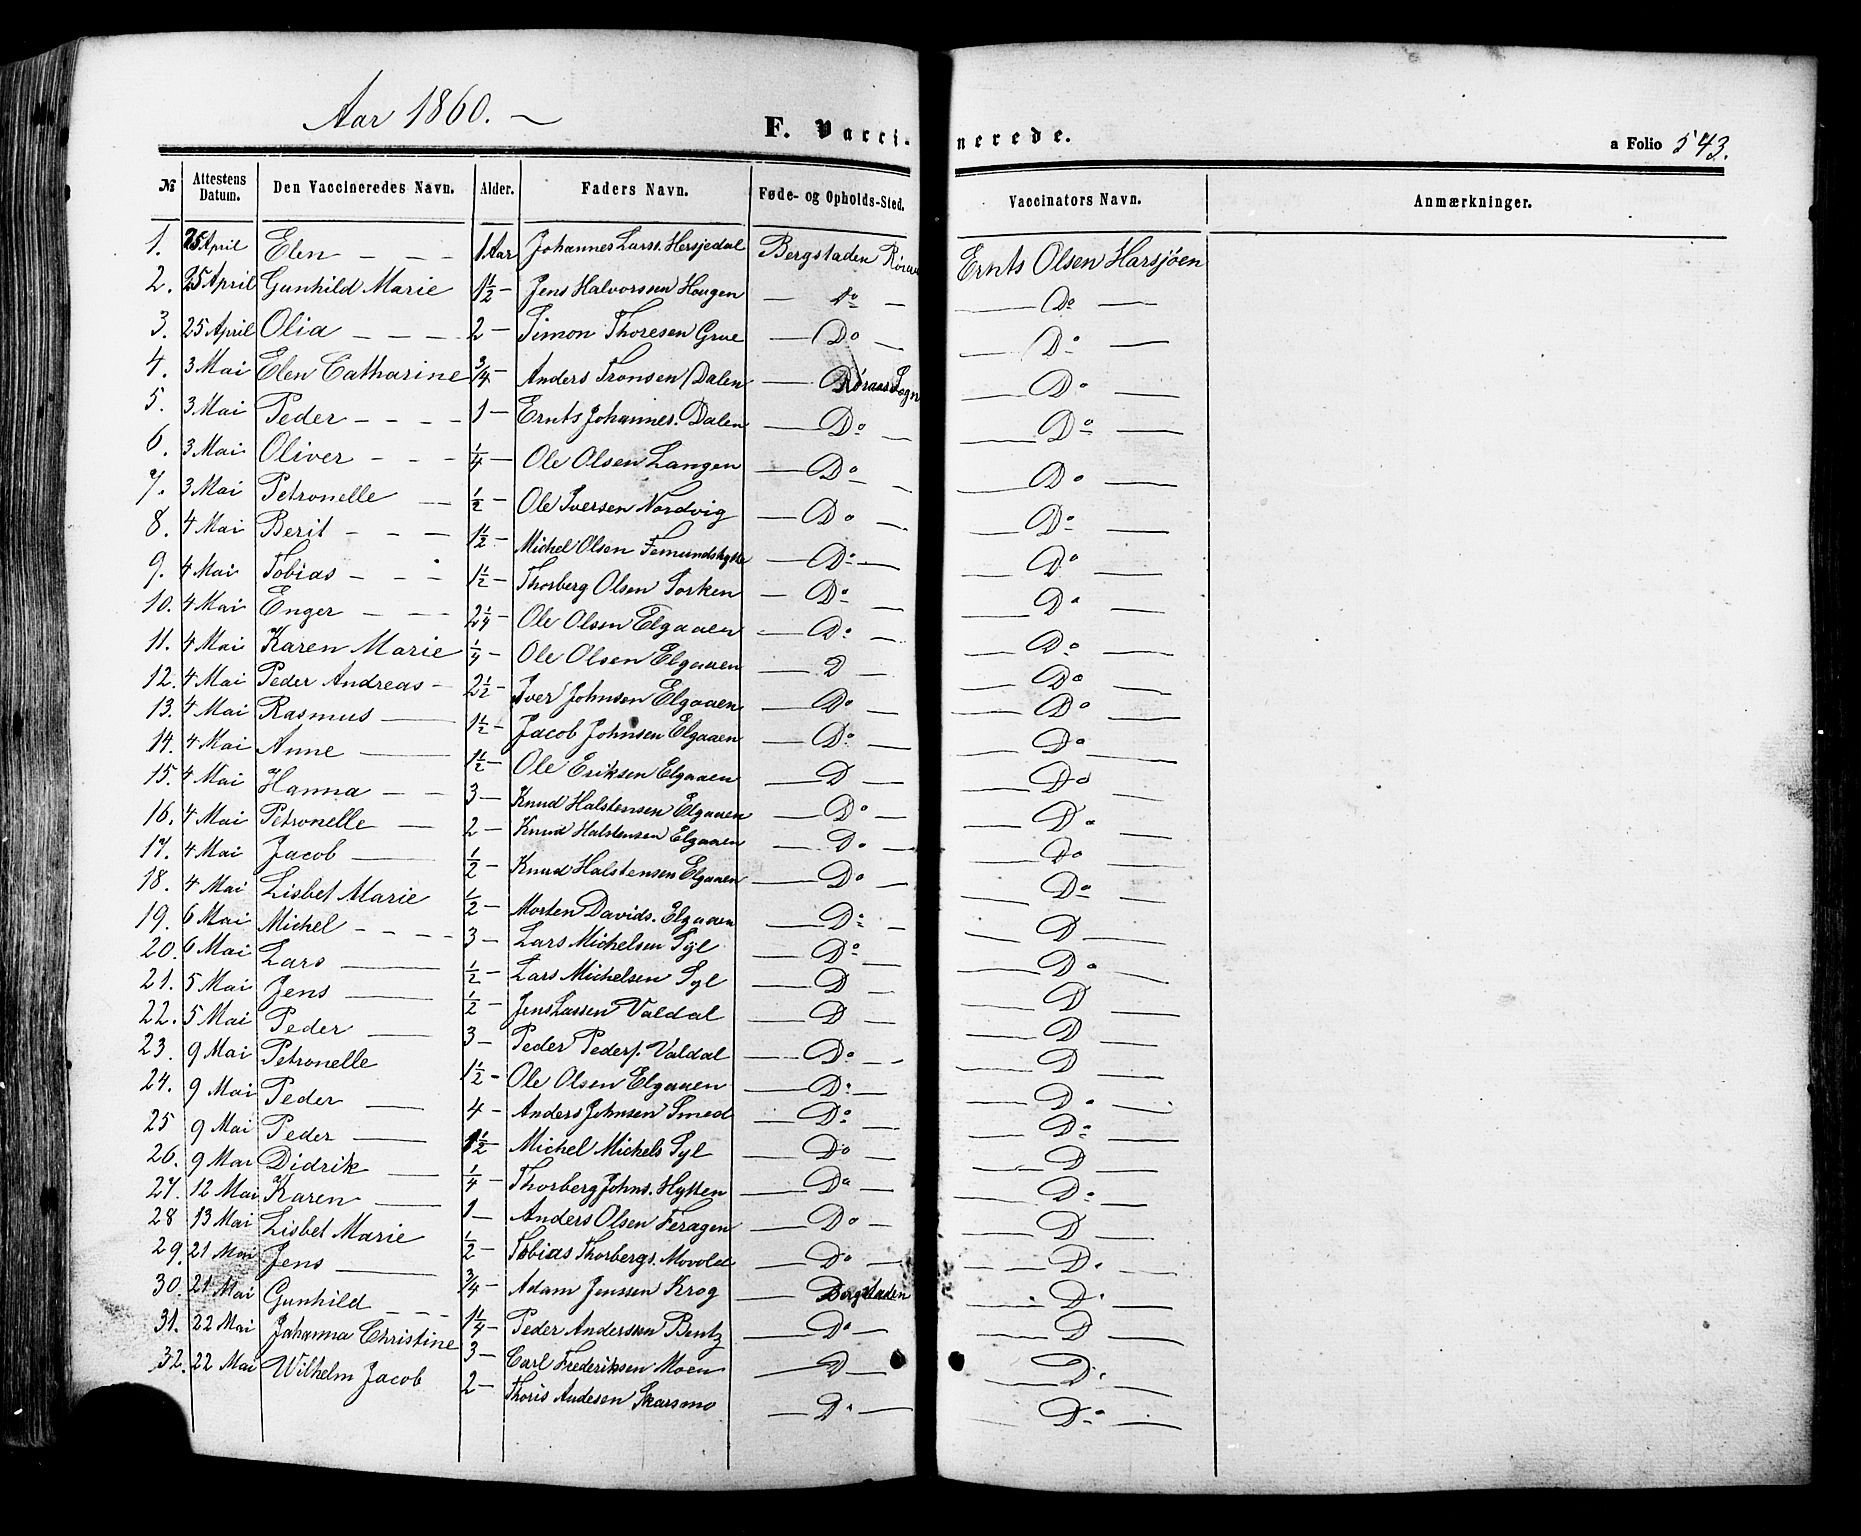 Aar 1860. —
F. Vacci- nerede. a Folio 543.
№ Attestens Datum. Den Vaccineredes Navn. Alder. Faders Navn. Føde- og Opholds-Sted. Vaccinators Navn. Anmærkninger.
1. 25 April Elen – – – 1 Aar Johannes Larss. Hersjedal Bergstaden Røraas Ernts Olsen Harsjøen
2. 25 April Gunhild Marie 1½ – Jens Halvorssen Hougen — Do — — Do —
3. 25 April Olia – – – – 2 – Simon Thoresen Grue — Do — — Do —
4. 3 Mai Elen Catharine 3/4 – Anders Tronsen Dalen — Røraas Sogn — Do —
5. 3 Mai Peder – – – – 1 – Ernts Johannes. Dalen — Do — — Do —
6. 3 Mai Oliver – – – 1/4 – Ole Olsen Langen — Do — — Do —
7. 3 Mai Petronelle — ½ – Ole Iversen Nordvig — Do — — Do —
8. 4 Mai Berit – – – 1½ – Michel Olsen Femundshytte — Do — — Do —
9. 4 Mai Tobias – – – 1½ – Thorberg Olsen Sorken — Do — — Do —
10. 4 Mai Enger – – – 2¼ Ole Olsen Elgaaen — Do — — Do —
11. 4 Mai Karen Marie ¼ – Ole Olsen Elgaaen — D — — Do —
12. 4 Mai Peder Andreas – 2½ – Iver Johnsen Elgaaen — Do — — Do —
13. 4 Mai Rasmus — 1½ – Jacob Johnsen Elgaaen — Do — — Do —
14. 4 Mai Anne — 1½ – Ole Eriksen Elgaaen — D — — Do —
15. 4 Mai Hanna – – 3 – Knud Halstensen Elgaaen — Do — — Do —
16. 4 Mai Petronelle — 2 – Knud Halstensen Elgaaen — Do — — Do —
17. 4 Mai Jacob — ½ – Knud Halstensen Elgaaen — Do — — Do —
18. 4 Mai Lisbet Marie ½ – Morten Davids. Elgaaen — Do — — Do —
19. 6 Mai Michel – – – – 3 – Lars Michelsen Syl — Do — — D —
20. 6 Mai Lars — ½ – Lars Michelsen Syl — D — — Do —
21. 5 Mai Jens — ½ – Jens Lassen Valdal — D — — D —
22. 5 Mai Peder — 3 – Peder Peders. Valdal — Do — — D —
23. 9 Mai Petronelle 1½ – Ole Olsen Elgaaen — Do — — D —
24. 9 Mai Peder — 4 – Anders Johnsen Smed — Do — — Do —
25 9 Mai Peder — 1½ – Michel Michels Syl — Do — — Do —
26. 9 Mai Didrik — ¼ – Thorberg Johns. Hytten — Do — — D —
27. 12 Mai Karen — 1 – Anders Olsen Feragen — Do — — Do —
28 13 Mai Lisbet Marie ½ – Tobias Thorbergs. Movold — Do — — D —
29. 21 Mai Jens — 3/4 – Adam Jenssen Krog — Bergstaden — D. —
30. 21 Mai Gunhild – – – 1¼ – Peder Anderssen Bentz — Do — — D. —
31. 22 Mai Johanna Christine 3 – Carl Frederiksen Moen — D — — D —
32. 22 Mai Wilhelm Jacob 2 – Thoris Andesen Skarsmo — D. — — D. —
— Do —